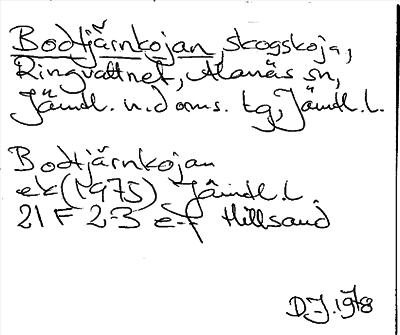 Bodtjärnkojan, skogskoja,
Ringvattnet, Alanäs sn,
Jämtl. n. doms. tg, Jämtl. l.
Bodtjärnkojan
ek (1975) Jämtl. l.
21 F 2-3 e-f Hillsand
D.J. 1978